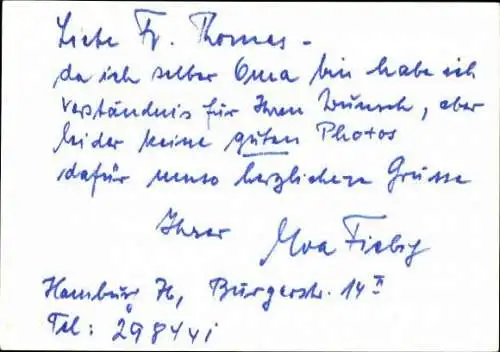 Liebe Fr. Thomas -
da ich selber Oma bin habe ich
verständnis für Ihren Wunsch, aber
leider keine guten Photos
dafür umso herzlichere Grüsse
Ihrer
Eva Fiebig
Hamburg 76, Bürgerstr. 14 II
Tel: 29844